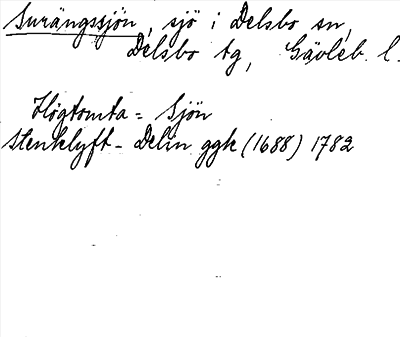 Surängssjön, sjö i Delsbo sn,
Delsbo tg, Gävleb. l.
Högtomta = Sjön
Stenklyft - Delin ggk (1688) 1782